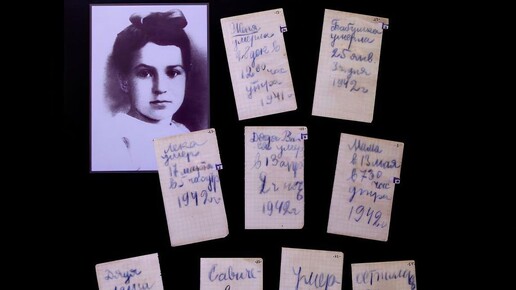 Женя
умерла
28 дек в
12 00 час
утра
1941 г
Бабушка
умерла
25 янв.
3 ч дня
1942 г
Лека
умер
17 марта
в 5 час утр
1942 г
Дядя Ва-
ся умер
в 13 апр
2 ч ноч
1942 г
Мама
в 13 мая
в 7 30
час
утра
1942 г
Дядя
Леша
Савиче-
Умер-